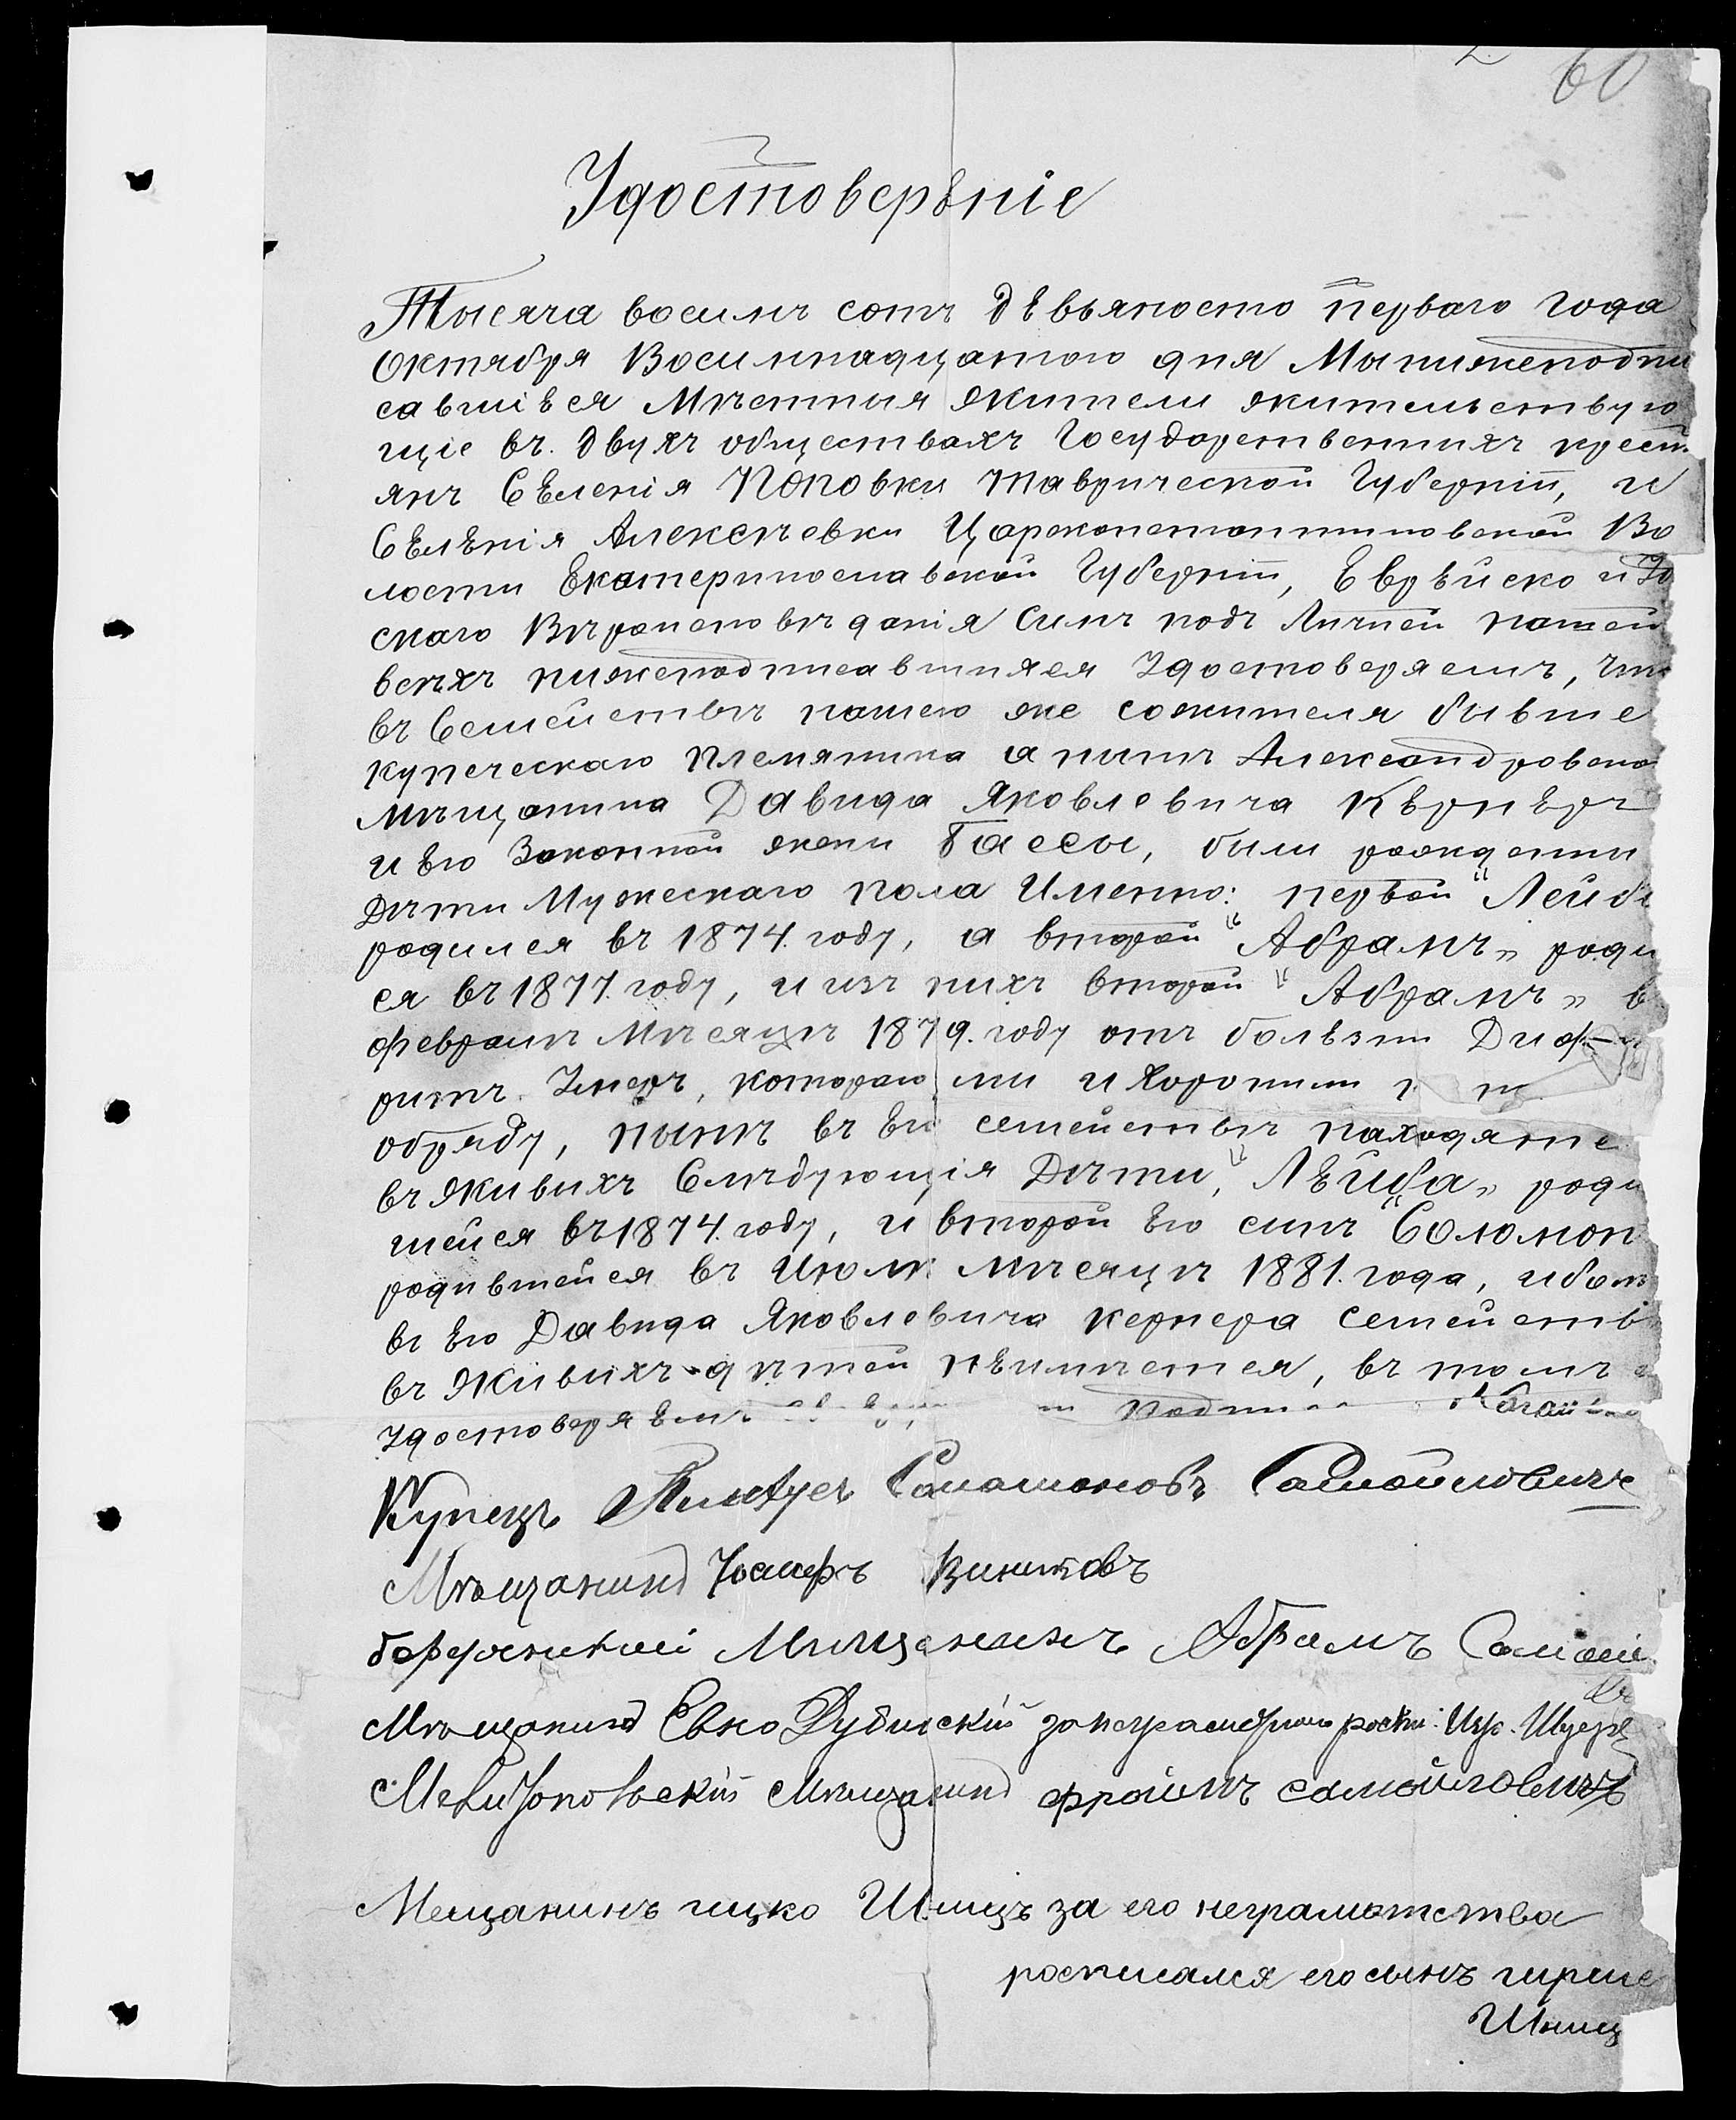 60
Удостоверѣніе
Тысяча восимъ сотъ дѣвьяносто перваго года
Октября Восимнадцатого дня Мы нижеподпи
савшіѣся Мѣстныя жители жительствую
щіе въ. двухъ обществахъ Государственныхъ крест
янъ Сѣленія Поповки Таврической Губерніи, и
Сѣлѣнія Алексѣевки Цареконстантиновской Во
лости Екатеринославской Губерніи, Еврѣйско
скаго Вѣроисповѣданія Симъ подъ Личной нашей
всѣхъ нижеподписавшихся Удостоверяемъ, что
въ Семействѣ нашего же сожителя бывше
купеческаго племянника а нынѣ Александровско
мѣщанина Давида Яковлевича Кѣрнѣръ
и Ѣго Законной жены Бассы, были рожденны
Дѣти Мужескаго пола Именно: первой "Лейб
родился въ 1874. году, а второй "Абрамъ„ роди
ся въ 1877. году, и изъ нихъ второй "Абрамъ„ в
февралѣ Мѣсяцѣ 1879. году отъ болѣзни Диф
ритъ Умеръ, котораго ми и хоронили
обряду, нынѣ въ Ѣго семействѣ находятс
въ живихъ Слѣдующія Дѣти, "Лѣйба„ роди
шейся въ 1874. году, и второй Ѣго синъ "Соломон
родившейся въ Июлѣ мѣсяцѣ 1881. года, и бол
въ Ѣго Давида Яковлевича Кернера семейств
въ Живихъ дѣтей нѣимѣется, въ томъ
Удостоверяѣмъ
Купецъ Соломоновъ Самойловичъ
Мѣщанинъ Иосифъ Винитовъ
Мѣщанинъ Абрамъ Самой
Мѣщанинъ Евно Дубинскій
Мѣщанинъ фроимъ самойловичъ
Мещанинъ ицко Шницъ за его неграмотства
росписался его сынъ гирше
Шниц